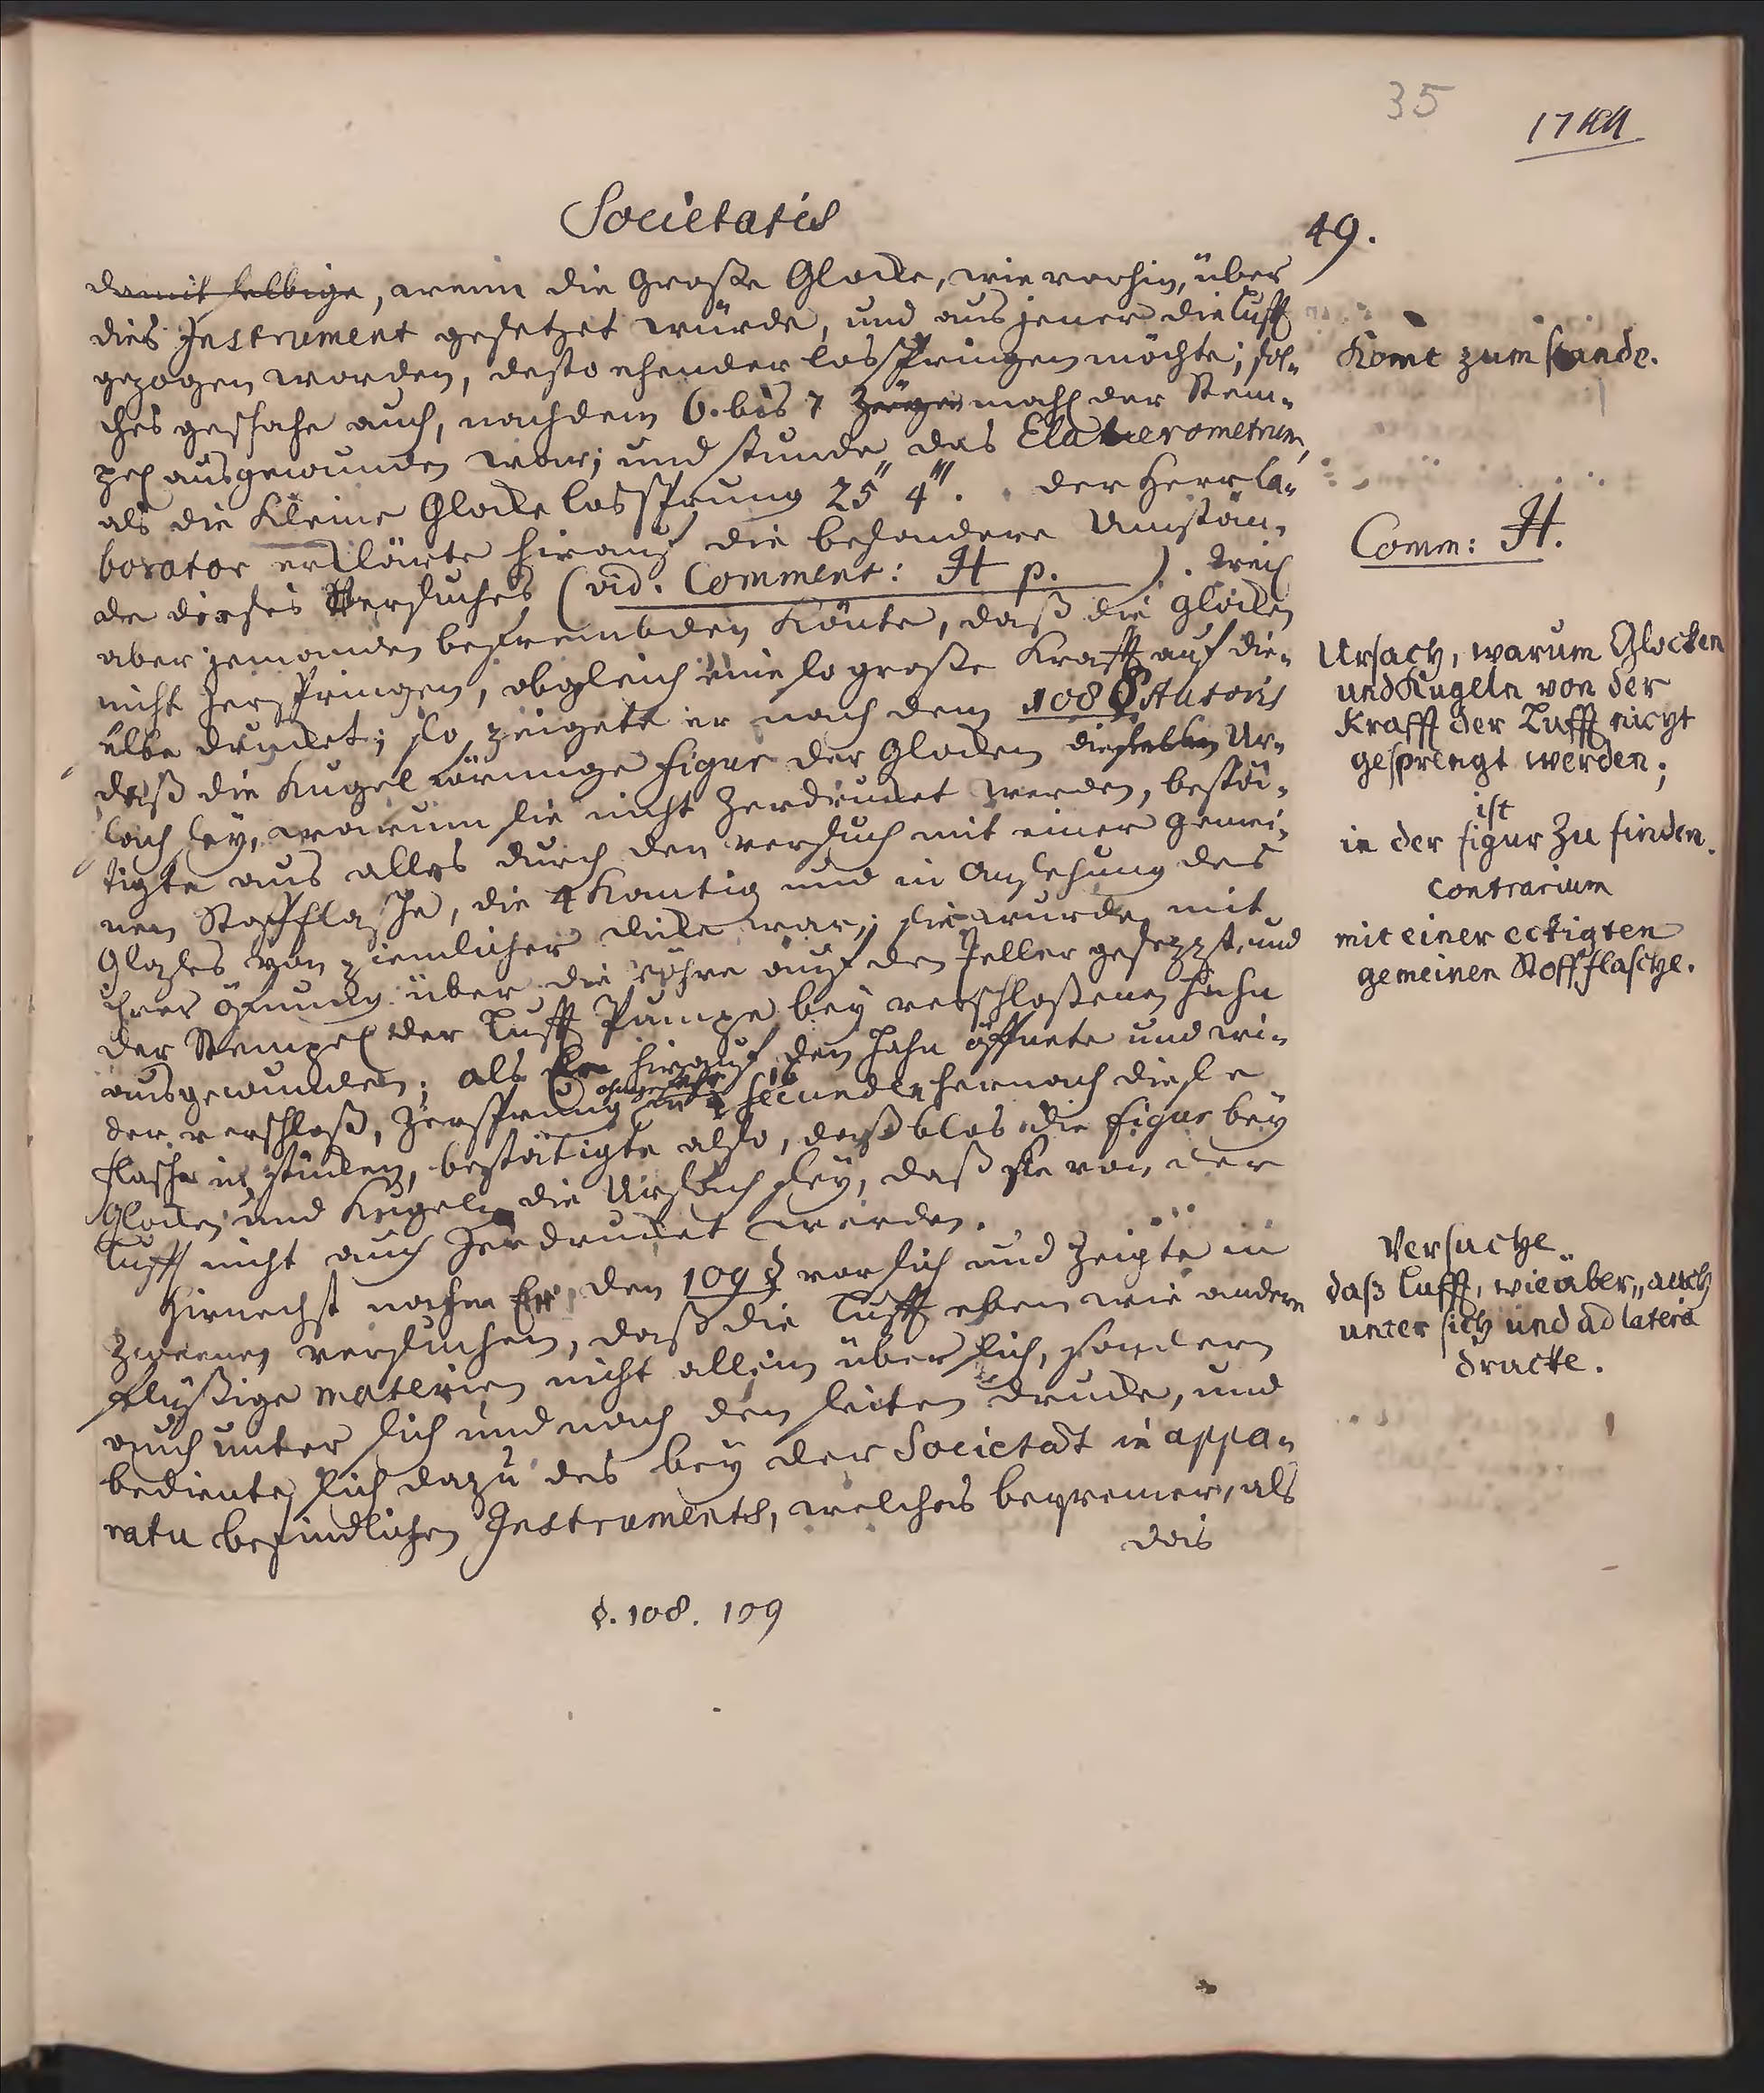 35
17
Societatis
49.
damit selbige, wenn die große Glocke, wie vorhin, über
dies Instrument gesetzet würde, und aus jener die Lufft
gezogen worden, desto ehender losspringen möchte; sol-
ches geschahe auch, nachdem 6. bis 7 Züge mahl der Stem-
pel ausgewunden war; und stunde das Elaterometrum,
als die kleine Glocke lossprung 25'' 4'''. der Herr La-
borator erklärte hirauf die besondere Umstän-
de dieses Versuches (vid. Comment: H p. ). Weil
aber jemanden befrembden könte, daß die Glocken
nicht zerspringen, obgleich eine so große Krafft auf die-
selbe drucket; so zeigete er nach dem 108 § Autoris
daß die Kugel förmige Figur der Glocken dieselben Ur-
sach sey, warum sie nicht zerdrucket werden, bestä-
tigte aus alles durch den versuch mit einer gemei-
nen Stoffflasche, die 4 kantig und in Ansehung des
Glases von ziemlicher dicke war; sie wurde mit
ihrer öfnung über die röhre auf den Teller gesezzt, und
der Stempel der Lufft Pumpe bey verschloßenen Hahn
ausgewunden; als Er hirauf den Hahn öffnete und wi-
der verschloß, zersprung ohngefehr 2 secunden hernach diese
flasche in stücken, bestätigte also, daß blos die Figur bey
Glocken und Kugeln die Ursach sey, daß sie von der
Lufft nicht auch zerdrucket werden.
Hirnechst nahm Er den 109 § vor sich und zeigte in
zweenen versuchen, daß die Lufft eben wie andere
flüßige materien nicht allein über sich, sondern
auch unter sich und nach den seiten drucke, und
bediente sich dazu des bey der Societæt in appa-
ratu befindlichen Instruments, welches beqvemer, als
das
§. 108. 109
Komt zum stande.
Comm: H.
Ursach, warum Glocken
und Kugeln von der
Krafft der Lufft nicht
gesprengt werden;
ist
in der figur zu finden.
contrarium
mit einer eckigten
gemeinen Stoffflasche.
Versuche
daß Lufft, wie über, auch
unter sich und ad latera
drucke.